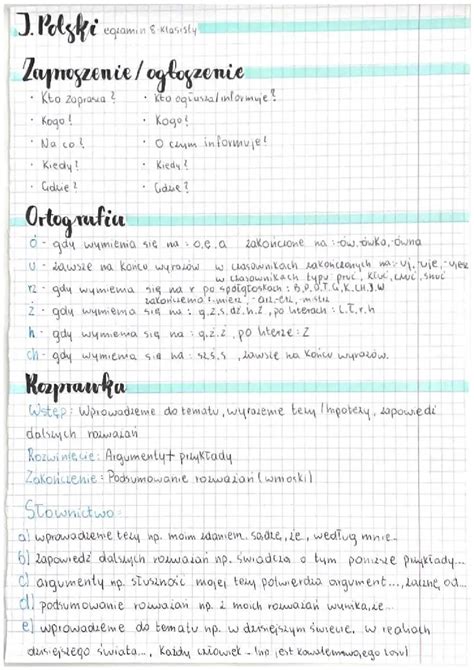 J. Polski egzamin 8-klasisty
Zaproszenie/ogłoszenie
· Kto zaprasza? · kto ogłasza/informuje?
· Kogo? · Kogo?
· Na co? · O czym informuje?
· Kiedy? · Kiedy?
· Gdzie? · Gdzie?
Ortografia
ó - gdy wymienia się na: o,e,a zakończone na: -ów, -ówka, -ówna
u - zawsze na końcu wyrazów w czasownikach zakończonych na: -uj, -uje, -ujesz
w czasownikach typu pruć, kłuć, czuć, snuć
rz - gdy wymienia się na r po spółgłoskach: B,P,D,T,G,K,CH,J,W
zakończenia -mierz, -arz, -erz, -mistrz
ż - gdy wymienia się na: g,z,s,dz,h,ź, po literach: l,ł,r,n
h - gdy wymienia się na: g,z,ż, po literze: Z
ch - gdy wymienia się na: sz,ś, zawsze na końcu wyrazów.
Rozprawka
Wstęp: Wprowadzenie do tematu, wyrażenie tezy/hipotezy, zapowiedź
dalszych rozważań
Rozwinięcie: Argumenty + przykłady
Zakończenie: Podsumowanie rozważań (wnioski)
Słownictwo:
a) wprowadzenie tezy np. moim zdaniem, sądzę, że, według mnie...
b) zapowiedź dalszych rozważań np. świadczą o tym poniższe przykłady...
c) argumenty np. słuszność mojej tezy potwierdza argument..., zacznę od...
d) podsumowanie rozważań np. z moich rozważań wynika, że...
e) wprowadzenie do tematu np. w dzisiejszym świecie, w realiach
dzisiejszego świata..., Każdy człowiek - (np jest kowalem swojego losu)